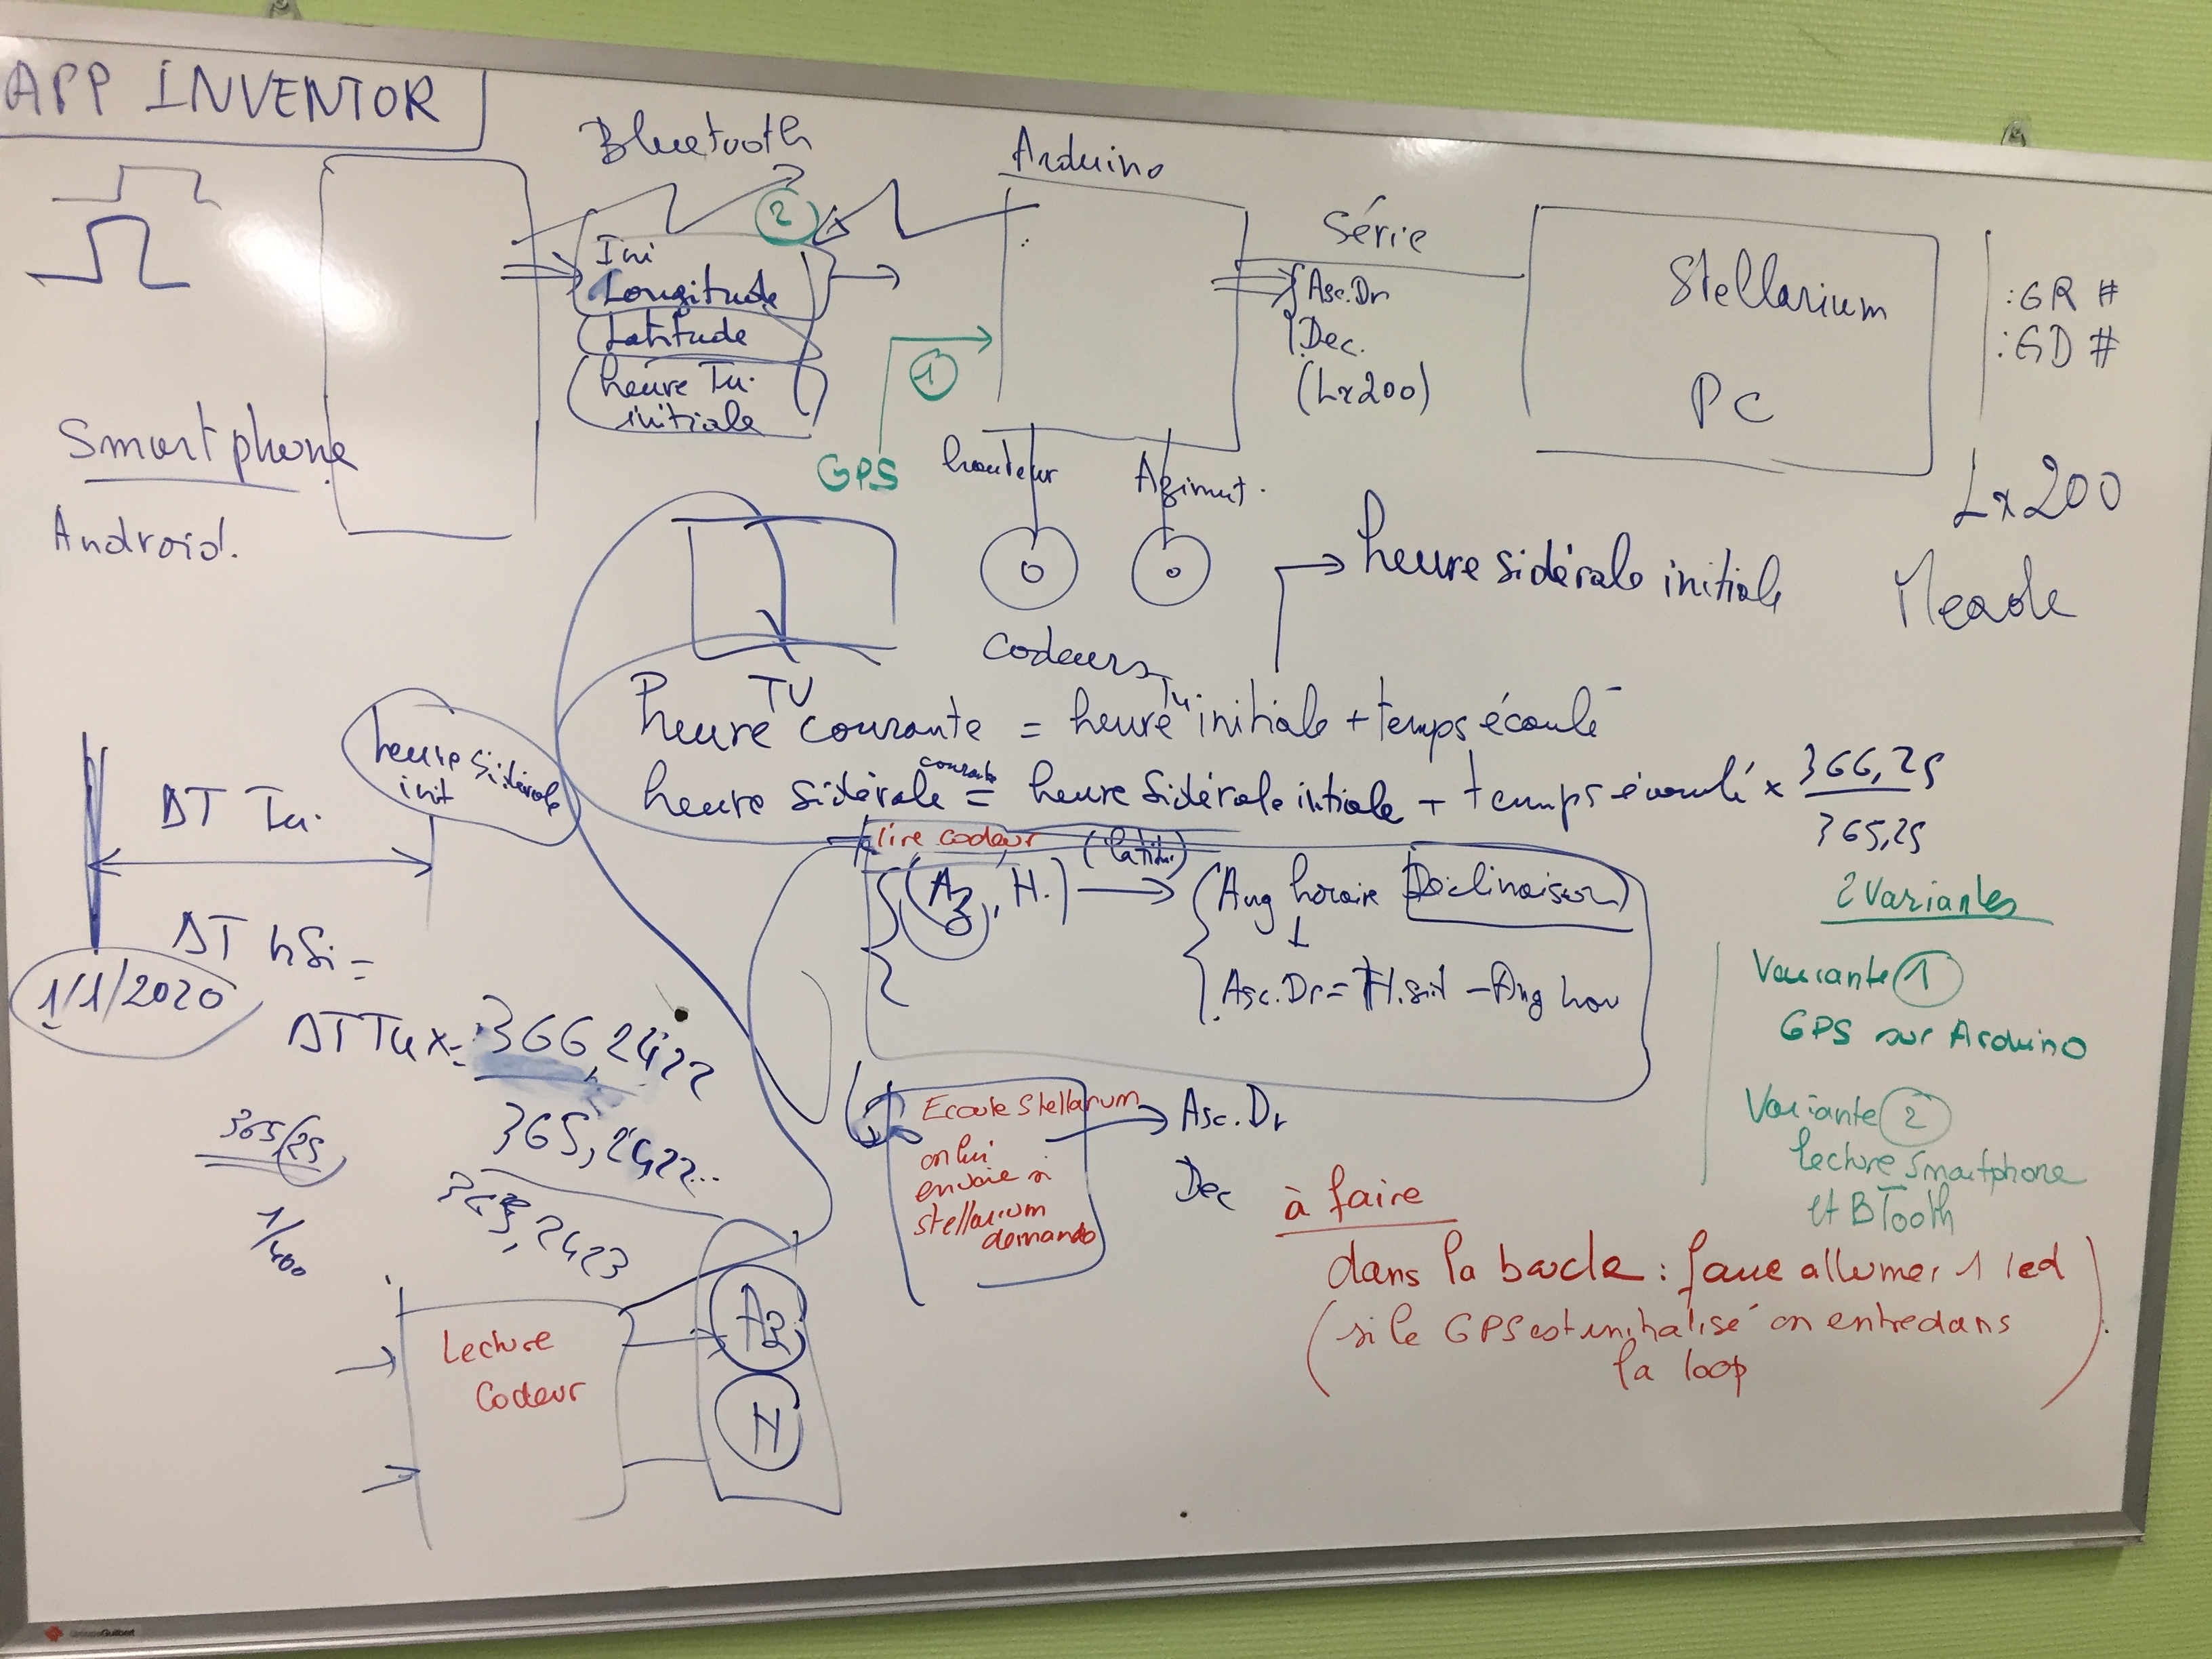 APP INVENTOR
Bluetooth
Arduino
2
Ini
Longitude
Latitude
heure Tu.
initiale
Smartphone
Android.
GPS
1
Série
Asc.Dr
Dec.
(Lx200)
Stellarium
PC
:GR #
:GD #
Lx200
Meade
hauteur
Azimut.
codeurs
heure sidérale initiale
TU
Tu
heure courante = heure initiale + temps écoulé
courante
heure sidérale = heure sidérale intiale + temps écoulé x 366,25
365,25
heure sidérale
init
ΔT Tu.
ΔT hSi =
1/1/2020
ΔT Tu x 366,2422
365,2422...
365/25
1/400
lire codeur
(Az, H.)
(latitu)
(Ang horaire Déclinaison)
Asc.Dr = H.sid - Ang hor
Ecoute Stellarum
on lui
envoie si
stellarium
demande
Asc.Dr
Dec
2 Variantes
Variante 1
GPS sur Arduino
Variante 2
lecture Smartphone
et BTooth
à faire
dans la boucle : faire allumer 1 led
(si le GPS est initialisé on entre dans
la loop)
Lecture
Codeur
Az
H